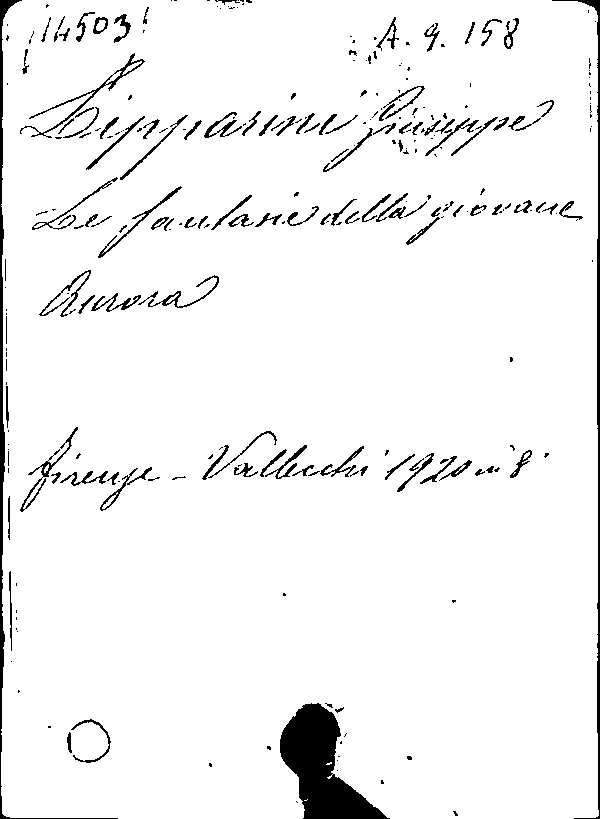 14503
A. 9. 158
Lipparini Giuseppe
Le fantasie della giovane
Aurora
Firenze - Vallecchi 1920 in 8°